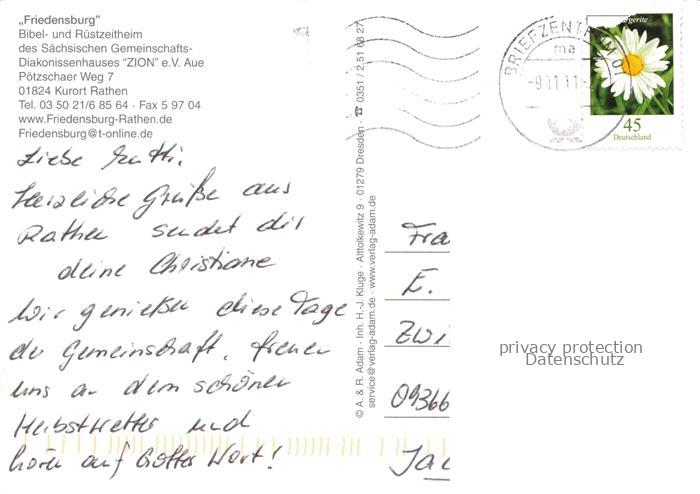 „Friedensburg"
Bibel- und Rüstzeitheim
des Sächsischen Gemeinschafts-
Diakonissenhauses "ZION" e.V. Aue
Pötzschaer Weg 7
01824 Kurort Rathen
Tel. 03 50 21/6 85 64 · Fax 5 97 04
www.Friedensburg-Rathen.de
Friedensburg@t-online.de
Liebe
Herzliche Grüße aus
Rathen sendet dir
deine Christiane
Wir genießen diese Tage
der Gemeinschaft, freuen
uns an dem schönen
Herbstwetter und
hören auf Gottes Wort!
© A. & R. Adam · Inh. H.-J. Kluge · Alttolkewitz 9 · 01279 Dresden · ☎ 0351 / 2 51 68 27
service@verlag-adam.de · www.verlag-adam.de
BRIEFZENTRUM
ma
-9.11.11
45
Deutschland
Fra
E.
Zwi
09366
Ja
privacy protection
Datenschutz